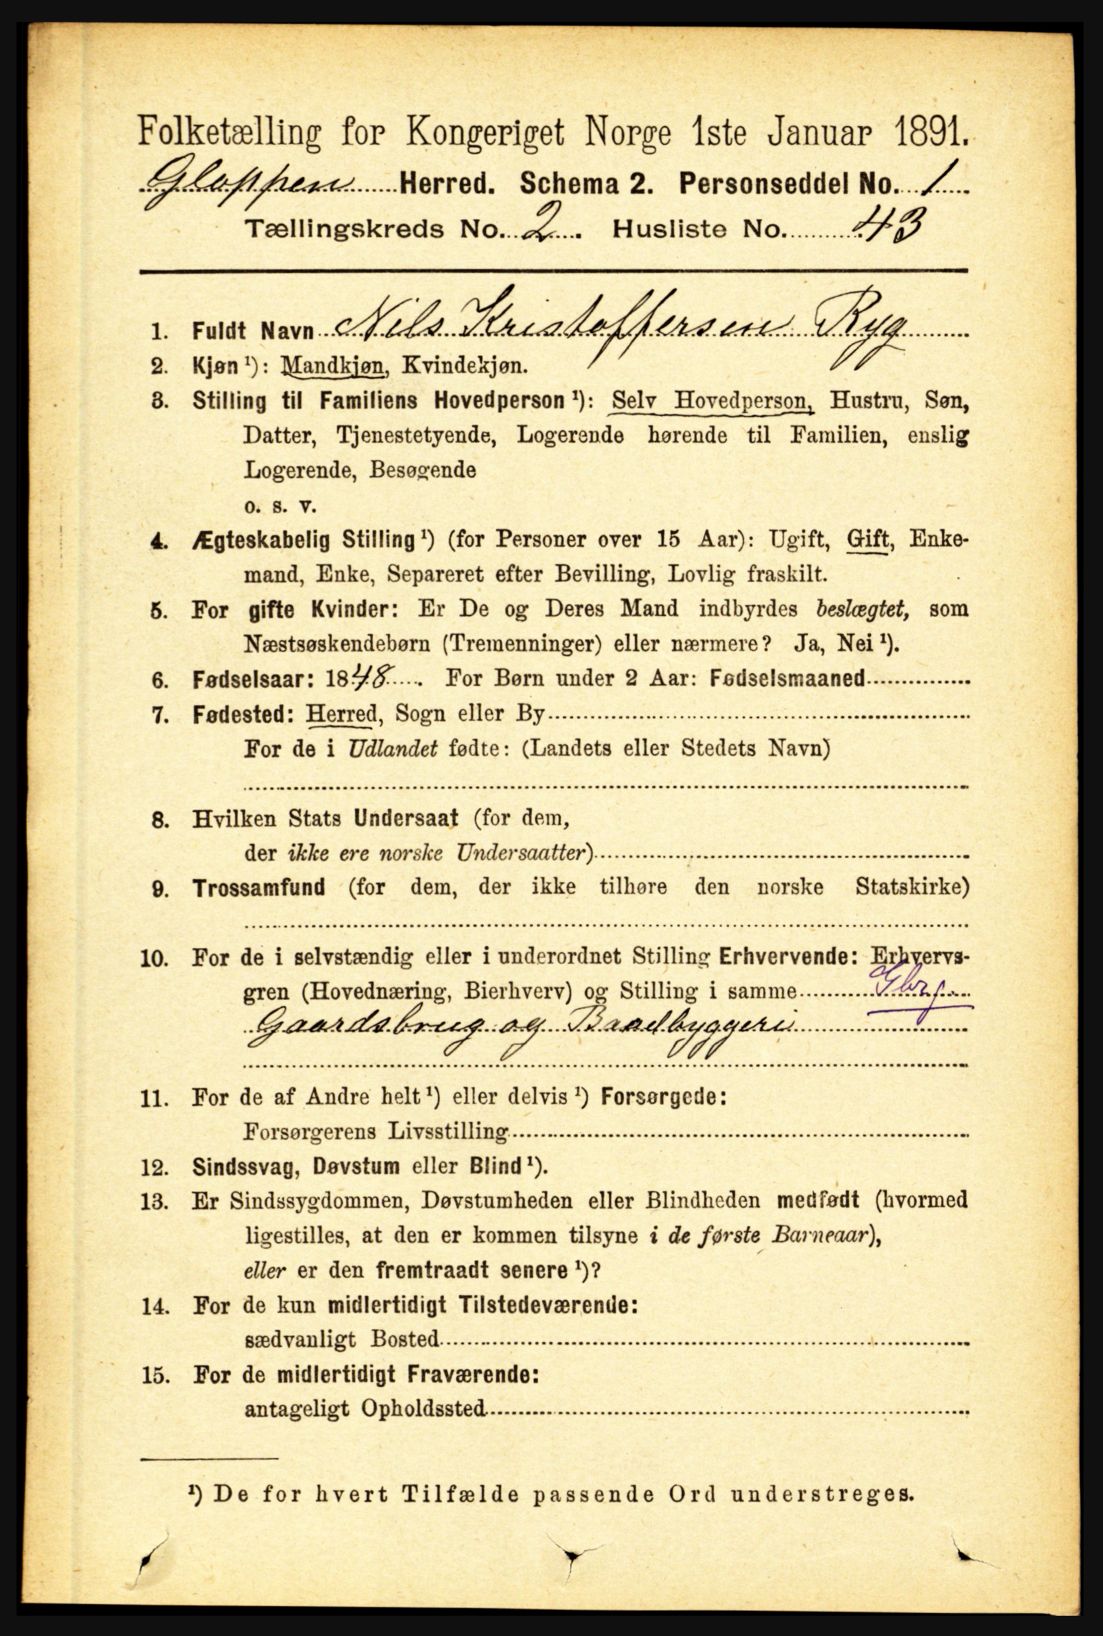 Folketælling for Kongeriget Norge 1ste Januar 1891.
Gloppen Herred. Schema 2. Personseddel No. 1
Tællingskreds No. 2. Husliste No. 43
1. Fuldt Navn Nils Kristoffersen Ryg
2. Kjøn ¹): Mandkjøn, Kvindekjøn.
3. Stilling til Familiens Hovedperson ¹): Selv Hovedperson, Hustru, Søn,
Datter, Tjenestetyende, Logerende hørende til Familien, enslig
Logerende, Besøgende
o. s. v.
4. Ægteskabelig Stilling ¹) (for Personer over 15 Aar): Ugift, Gift, Enke-
mand, Enke, Separeret efter Bevilling, Lovlig fraskilt.
5. For gifte Kvinder: Er De og Deres Mand indbyrdes beslægtet, som
Næstsøskendebørn (Tremenninger) eller nærmere? Ja, Nei ¹).
6. Fødselsaar: 1848. For Børn under 2 Aar: Fødselsmaaned
7. Fødested: Herred, Sogn eller By
For de i Udlandet fødte: (Landets eller Stedets Navn)
8. Hvilken Stats Undersaat (for dem,
der ikke ere norske Undersaatter)
9. Trossamfund (for dem, der ikke tilhøre den norske Statskirke)
10. For de i selvstændig eller i underordnet Stilling Erhvervende: Erhvervs-
gren (Hovednæring, Bierhverv) og Stilling i samme Gbrg.
Gaardsbrug og Baadbyggeri
11. For de af Andre helt ¹) eller delvis ¹) Forsørgede:
Forsørgerens Livsstilling
12. Sindssvag, Døvstum eller Blind ¹).
13. Er Sindssygdommen, Døvstumheden eller Blindheden medfødt (hvormed
ligestilles, at den er kommen tilsyne i de første Barneaar),
eller er den fremtraadt senere ¹)?
14. For de kun midlertidigt Tilstedeværende:
sædvanligt Bosted
15. For de midlertidigt Fraværende:
antageligt Opholdssted
¹) De for hvert Tilfælde passende Ord understreges.